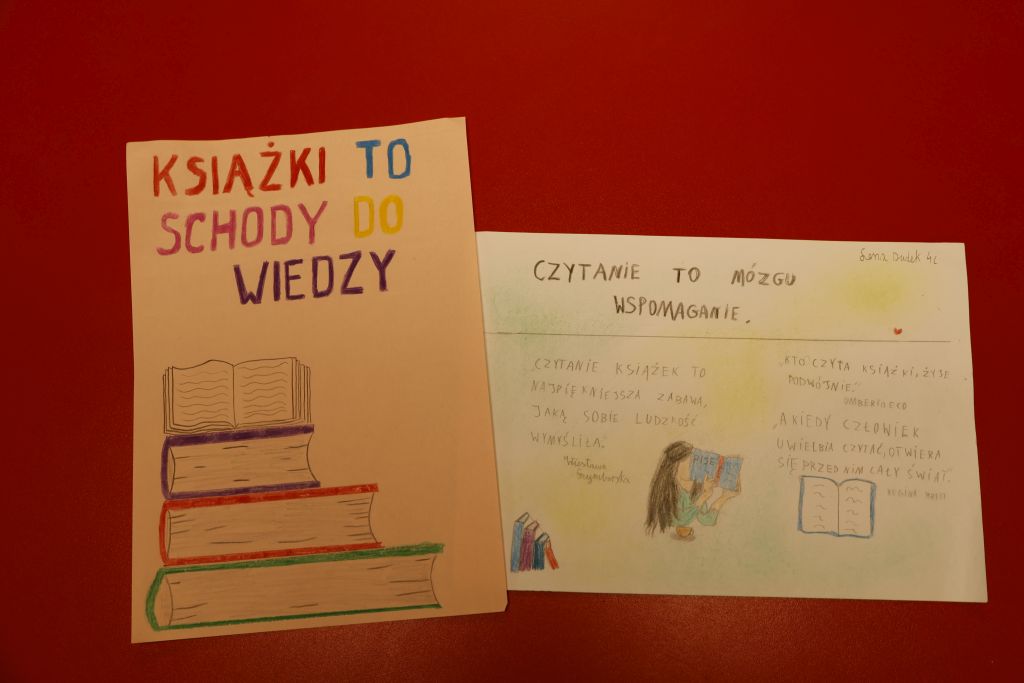 KSIĄŻKI TO
SCHODY DO
WIEDZY
Lena Dudek 4c
CZYTANIE TO MÓZGU
WSPOMAGANIE.
„CZYTANIE KSIĄŻEK TO
NAJPIĘKNIEJSZA ZABAWA,
JAKĄ SOBIE LUDZKOŚĆ
WYMYŚLIŁA."
Wisława
Szymborska
„KTO CZYTA KSIĄŻKI, ŻYJE
PODWÓJNIE."
UMBERTO ECO
„A KIEDY CZŁOWIEK
UWIELBIA CZYTAĆ, OTWIERA
SIĘ PRZED NIM CAŁY ŚWIAT."
REGINA